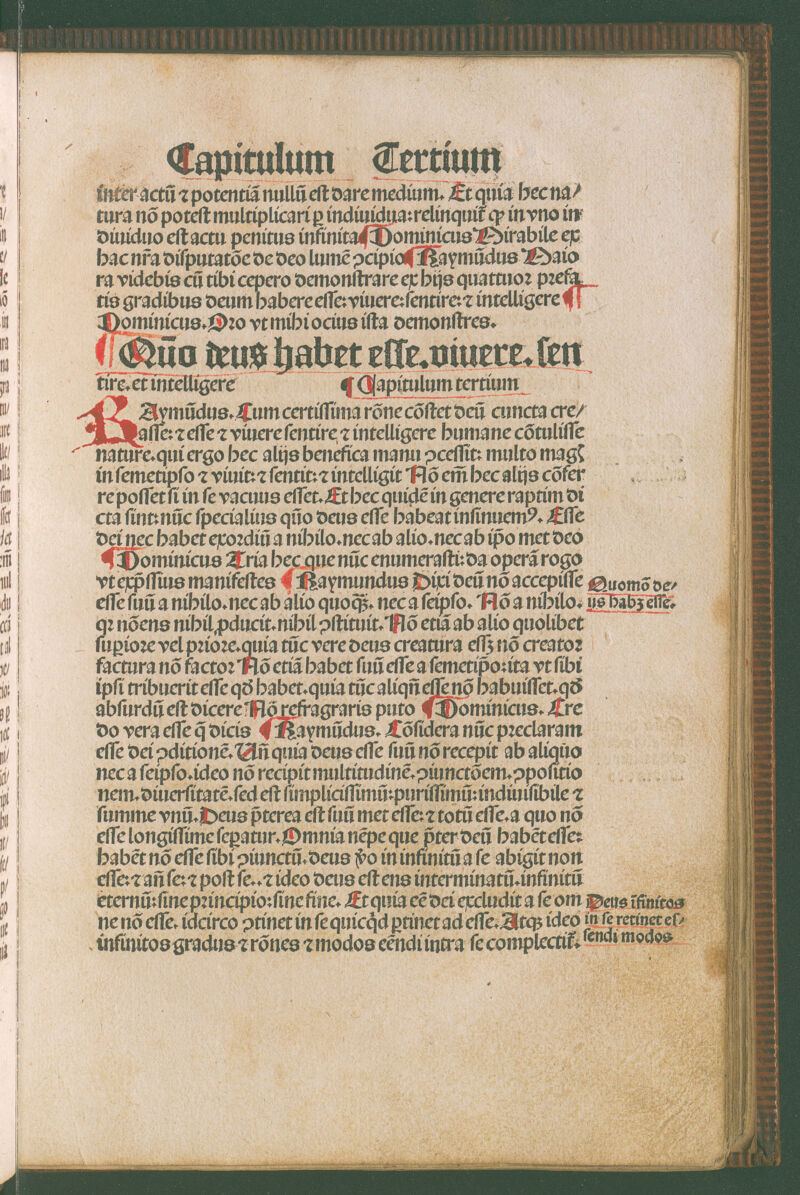 Capitulum Tertium
inter actū ⁊ potentiā nullū est dare medium. Et quia hec na/
tura nō potest multiplicari ꝑ indiuidua: relinquit̄ ꝙ in vno in
diuiduo est actu penitus infinita ¶ Dominicus Mirabile ex
hac nr̄a disputatōe de deo lumē ↄcipio ¶ Raymūdus Maio
ra videbis cū tibi cepero demonstrare ex hijs quattuor prefa
tis gradibus deum habere esse: viuere: sentire: ⁊ intelligere ¶
Dominicus. Oro vt mihi ocius ista demonstres.
¶ Quō deus habet esse. viuere. sen
tire. et intelligere ¶ Capitulum tertium
RAymūdus. Cum certissima rōne cōstet deū cuncta cre/
asse: ⁊ esse ⁊ viuere sentire ⁊ intelligere humane cōtulisse
nature. qui ergo hec alijs benefica manu ↄcessit: multo magꝭ
in semetipso ⁊ viuit: ⁊ sentit: ⁊ intelligit Nō em̄ hec alijs cōfer
re posset si in se vacuus esset. Et hec quidē in genere raptim di
cta sint: nūc specialius quō deus esse habeat insinuemꝰ. Esse
dei nec habet exordiū a nihilo. nec ab alio. nec ab ip̄o met deo
¶ Dominicus Tria hec que nūc enumerasti: da operā rogo
vt exp̄ssius manifestes ¶ Raymundus Dixi deū nō accepisse
esse suū a nihilo. nec ab alio quoqꝫ. nec a seipso. Nō a nihilo.
qꝛ nōens nihil ꝓducit. nihil ↄstituit. Nō etiā ab alio quolibet
suꝑiore vel priore. quia tūc vere deus creatura essꝫ nō creator
factura nō factor Nō etiā habet suū esse a semetip̄o: ita vt sibi
ipsi tribuerit esse qd̄ habet. quia tūc aliqn̄ esse nō habuisset. qd̄
absurdū est dicere Nō refragraris puto ¶ Dominicus. Cre
do vera esse q̄ dicis ¶ Raymūdus. Cōsidera nūc preclaram
esse dei ↄditionē. Un̄ quia deus esse suū nō recepit ab aliquo
nec a seipso. ideo nō recipit multitudinē. ↄiunctōem. ↄpositio
nem. diuersitatē. sed est simplicissimū: purissimū: indiuisibile ⁊
summe vnū. Deus p̄terea est suū met esse: ⁊ totū esse. a quo nō
esse longissime seꝑatur. Omnia nēpe que p̄ter deū habēt esse:
habēt nō esse sibi ↄiunctū. deus v̄o in infinitū a se abigit non
esse: ⁊ an̄ se: ⁊ post se.. ⁊ ideo deus est ens interminatū. infinitū
eternū: sine principio: sine fine. Et quia eē dei excludit a se om
ne nō esse. idcirco ↄtinet in se quicq̇d ꝑtinet ad esse. Atqꝫ ideo
infinitos gradus ⁊ rōnes ⁊ modos eēndi intra se complectit̄.
Quomō de/
us habꝫ esse.
Deus īfinitos
in se retinet es/
sendi modos